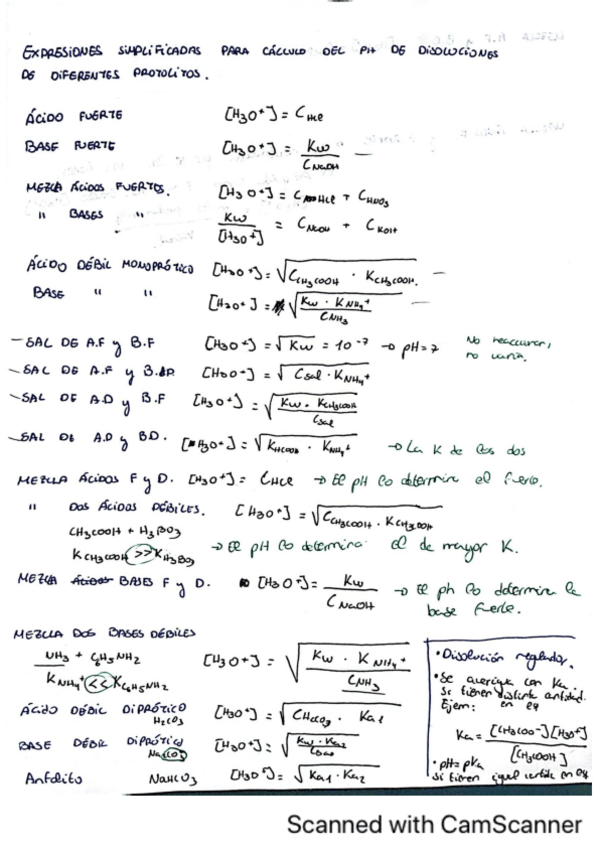 EXPRESIONES SIMPLIFICADAS PARA CÁLCULO DEL PH DE DISOLUCIONES
DE DIFERENTES PROTOLITOS.
ÁCIDO FUERTE [H3O+] = C HCl
BASE FUERTE [H3O+] = Kw / C NaOH
MEZCLA ÁCIDOS FUERTES. [H3O+] = C HCl + C HNO3
" BASES " Kw / [H3O+] = C NaOH + C KOH
ÁCIDO DÉBIL MONOPRÓTICO [H3O+] = √(C CH3COOH · K CH3COOH.)
BASE " " [H3O+] = √(Kw · K NH4+ / C NH3)
- SAL DE A.F y B.F [H3O+] = √Kw = 10^-7 → pH = 7 No reaccionan, no varía.
- SAL DE A.F y B.D. [H3O+] = √(Csal · K NH4+)
- SAL DE A.D y B.F [H3O+] = √(Kw · K CH3COOH / Csal)
- SAL DE A.D y BD. [H3O+] = √(K HCOOH · K NH4+) → La K de los dos
MEZCLA ÁCIDOS F y D. [H3O+] = C HCl → El pH lo determina el fuerte.
" DOS ÁCIDOS DÉBILES. [H3O+] = √(C CH3COOH · K CH3COOH)
CH3COOH + H3BO3
K CH3COOH >> K H3BO3 → El pH lo determina el de mayor K.
MEZCLA BASES F y D. [H3O+] = Kw / C NaOH → El ph lo determina la base fuerte.
MEZCLA DOS BASES DÉBILES
NH3 + C6H5NH2 [H3O+] = √(Kw · K NH4+ / C NH3)
K NH4+ << K C6H5NH2
ÁCIDO DÉBIL DIPRÓTICO H2CO3 [H3O+] = √(C H2CO3 · Ka1)
BASE DÉBIL DIPRÓTICA Na2CO3 [H3O+] = √(Kw · Ka2 / C)
Anfolito NaHCO3 [H3O+] = √(Ka1 · Ka2)
• Disolución reguladora.
• Se averigua con Ka
si tienen distinta cantidad.
Ejem: en eq
Ka = [CH3COO-][H3O+] / [CH3COOH]
• pH = pKa
si tienen igual cantidad en eq
Scanned with CamScanner